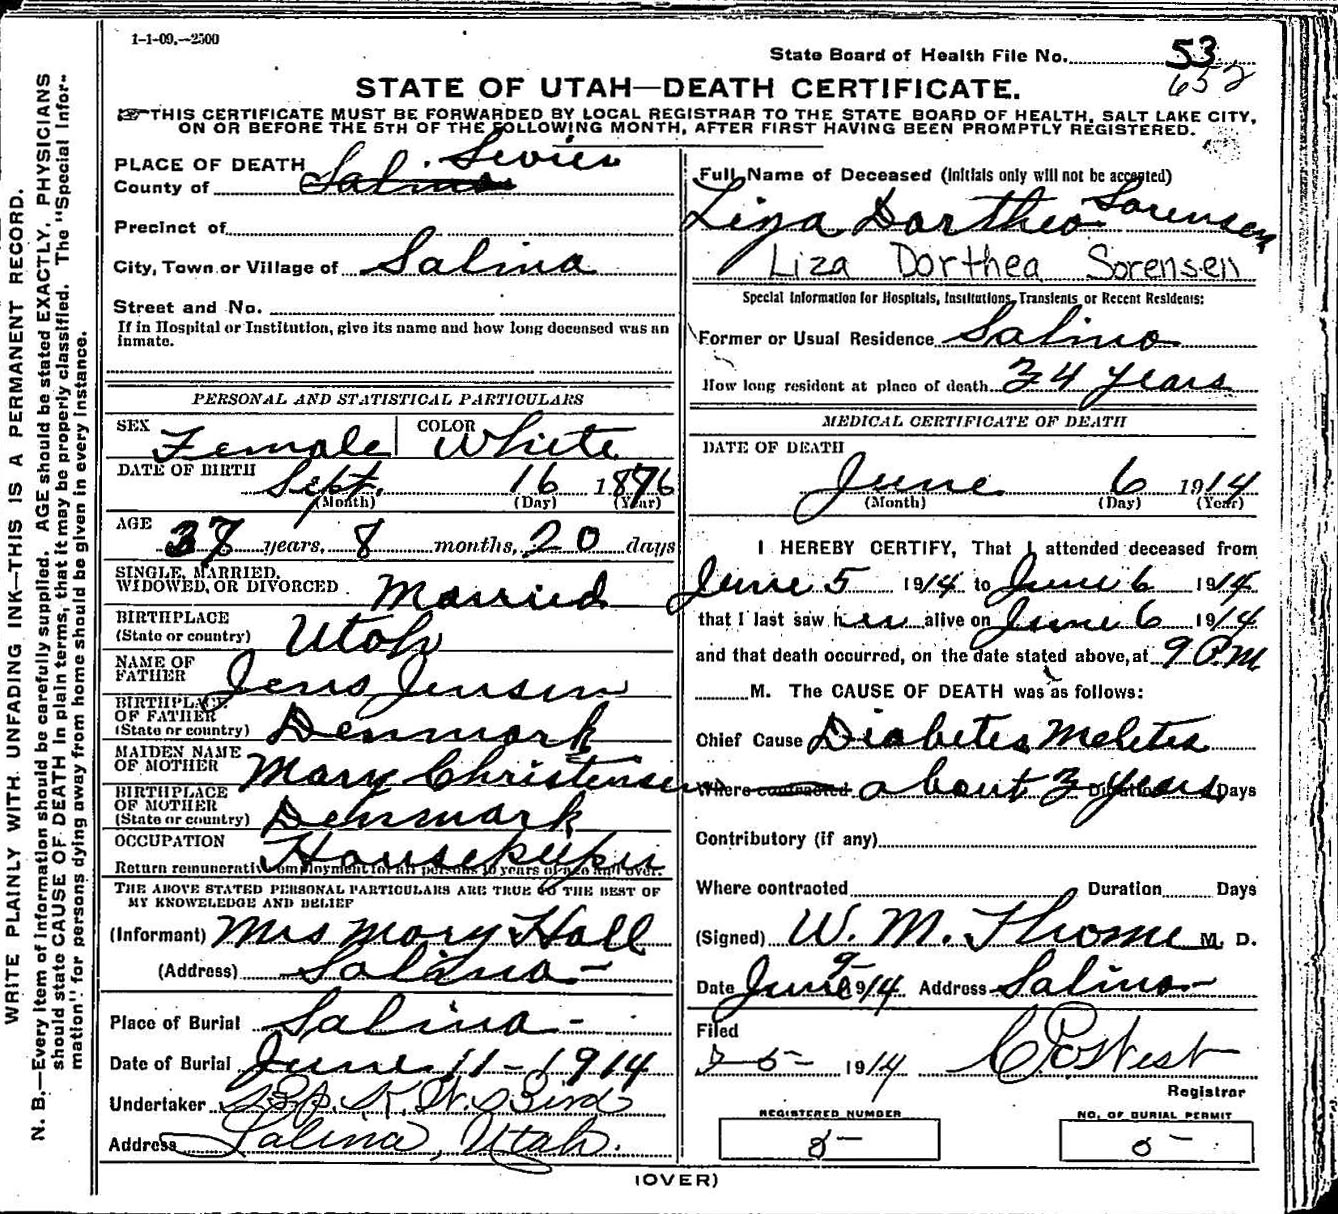 1-1-09.—2500
State Board of Health File No. 53
652
STATE OF UTAH—DEATH CERTIFICATE.
THIS CERTIFICATE MUST BE FORWARDED BY LOCAL REGISTRAR TO THE STATE BOARD OF HEALTH, SALT LAKE CITY,
ON OR BEFORE THE 5TH OF THE FOLLOWING MONTH, AFTER FIRST HAVING BEEN PROMPTLY REGISTERED.
WRITE PLAINLY WITH UNFADING INK—THIS IS A PERMANENT RECORD.
N. B.—Every item of information should be carefully supplied. AGE should be stated EXACTLY. PHYSICIANS
should state CAUSE OF DEATH in plain terms, that it may be properly classified. The "Special Infor-
mation" for persons dying away from home should be given in every instance.
PLACE OF DEATH Sevier
County of Salina
Precinct of
City, Town or Village of Salina
Street and No.
If in Hospital or Institution, give its name and how long deceased was an
inmate.
PERSONAL AND STATISTICAL PARTICULARS
SEX Female COLOR White
DATE OF BIRTH
Sept. 16 1876
(Month) (Day) (Year)
AGE
37 years, 8 months, 20 days
SINGLE, MARRIED,
WIDOWED, OR DIVORCED Married
BIRTHPLACE
(State or country) Utah
NAME OF
FATHER Jens Jensen
BIRTHPLACE
OF FATHER
(State or country) Denmark
MAIDEN NAME
OF MOTHER Mary Christensen
BIRTHPLACE
OF MOTHER
(State or country) Denmark
OCCUPATION Housekeeper
Return remunerative employment for all persons 10 years of age and over.
THE ABOVE STATED PERSONAL PARTICULARS ARE TRUE TO THE BEST OF
MY KNOWELEDGE AND BELIEF
(Informant) Mrs Mary Hall
(Address) Salina
Place of Burial Salina
Date of Burial June 11-1914
Undertaker Bird
Address Salina, Utah.
Full Name of Deceased (initials only will not be accepted)
Liza Dorthea Sorensen
Liza Dorthea Sorensen
Special Information for Hospitals, Institutions, Transients or Recent Residents:
Former or Usual Residence Salina
How long resident at place of death 34 years
MEDICAL CERTIFICATE OF DEATH
DATE OF DEATH
June 6 1914
(Month) (Day) (Year)
I HEREBY CERTIFY, That I attended deceased from
June 5 1914 to June 6 1914
that I last saw her alive on June 6 1914
and that death occurred, on the date stated above, at 9 P.M
M. The CAUSE OF DEATH was as follows:
Chief Cause Diabetes Meletes
Where contracted about 3 years Duration Days
Contributory (if any)
Where contracted Duration Days
(Signed) W. M. Thome M. D.
Date June 9 1914 Address Salina
Filed
5 1914 West
Registrar
REGISTERED NUMBER
8
NO. OF BURIAL PERMIT
(OVER)